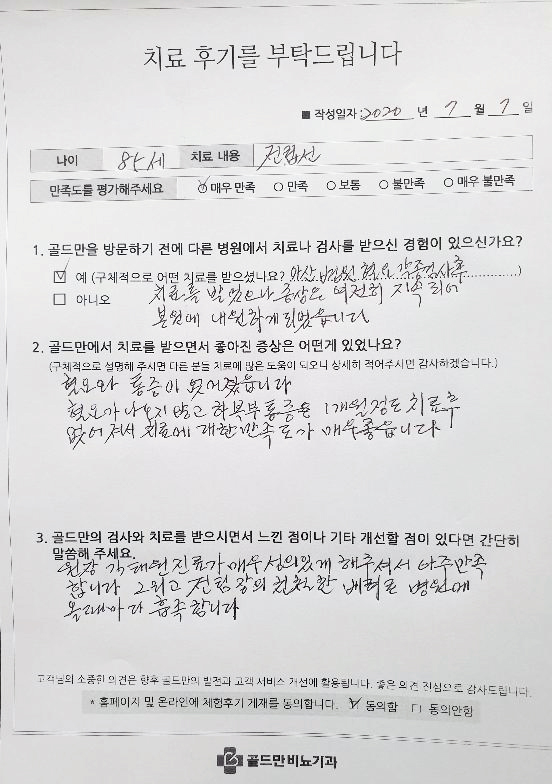 치료 후기를 부탁드립니다
■ 작성일자: 2020 년 7 월 7 일
나이 85세 치료 내용 전립선
만족도를 평가해주세요 ☑ 매우 만족 ○ 만족 ○ 보통 ○ 불만족 ○ 매우 불만족
1. 골드만을 방문하기 전에 다른 병원에서 치료나 검사를 받으신 경험이 있으신가요?
☑ 예 (구체적으로 어떤 치료를 받으셨나요? 아산병원 혈뇨 각종검사후 )
□ 아니오 치료를 받았으나 증상은 여전히 지속되어
본원에 내원하게되었읍니다
2. 골드만에서 치료를 받으면서 좋아진 증상은 어떤게 있었나요?
(구체적으로 설명해 주시면 다른 분들 치료에 많은 도움이 되오니 상세히 적어주시면 감사하겠습니다.)
혈뇨와 통증이 없어졌읍니다
혈뇨가 나오지 않고 하복부 통증은 1개월정도 치료후
없어져서 치료에 대한 만족도가 매우좋읍니다
3. 골드만의 검사와 치료를 받으시면서 느낀 점이나 기타 개선할 점이 있다면 간단히
말씀해 주세요.
원장 진료가 매우 성의있게 해주셔서 아주만족
합니다 그리고 전팀장의 친절한 배려로 병원에
올때마다 흡족합니다
고객님의 소중한 의견은 향후 골드만의 발전과 고객 서비스 개선에 활용됩니다. 좋은 의견 진심으로 감사드립니다.
* 홈페이지 및 온라인에 체험후기 게재를 동의합니다. ☑ 동의함 □ 동의안함
골드만비뇨기과